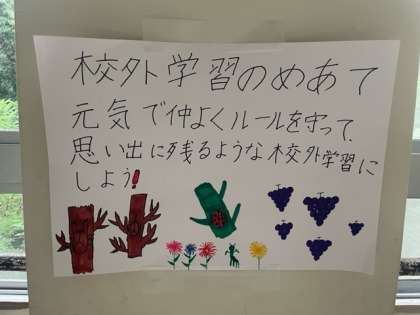 校外学習のめあて
元気で仲よくルールを守って、
思い出に残るような校外学習に
しよう!